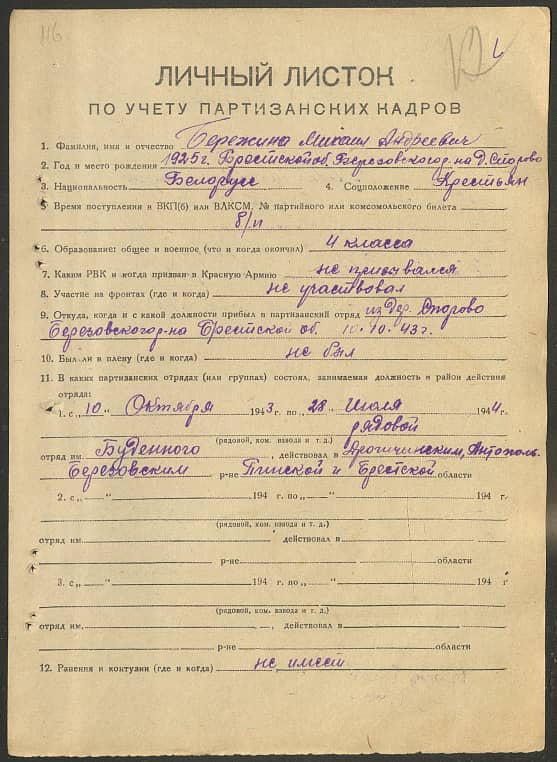 116
ЛИЧНЫЙ ЛИСТОК
ПО УЧЕТУ ПАРТИЗАНСКИХ КАДРОВ
1. Фамилия, имя и отчество Бережина Михаил Андреевич
2. Год и место рождения 1925г. Брестской об. Березовского р-на Д. Спорово
3. Национальность Белорусс 4. Соцположение Крестьян
5 Время поступления в ВКП(б) или ВЛКСМ, № партийного или комсомольского билета
б/п
6. Образование: общее и военное (что и когда окончил) 4 класса
7. Каким РВК и когда призван в Красную Армию не призывался
8. Участие на фронтах (где и когда) не участвовал
9. Откуда, когда и с какой должности прибыл в партизанский отряд из дер. Спорово
Березовского р-на Брестской об. 10.10.43г.
10. Был ли в плену (где и когда) не был
11. В каких партизанских отрядах (или группах) состоял, занимаемая должность и район действия
отряда:
1. с „10" Октября 1943 г. по „28" Июля 1944г.
рядовой
(рядовой, ком. взвода и т. д.)
отряд им. Буденного, действовал в Дрогичинским, Антополь
Березовским р-не Пинской и Брестской области
2. с „ " 194 г. по „ " 194 г.
(рядовой, ком. взвода и т. д.)
отряд им. действовал в
р-не области
3. с „ " 194 г. по „ " 194 г
(рядовой, ком. взвода и т. д.)
отряд им. , действовал в
р-не области
12. Ранения и контузии (где и когда) не имеет